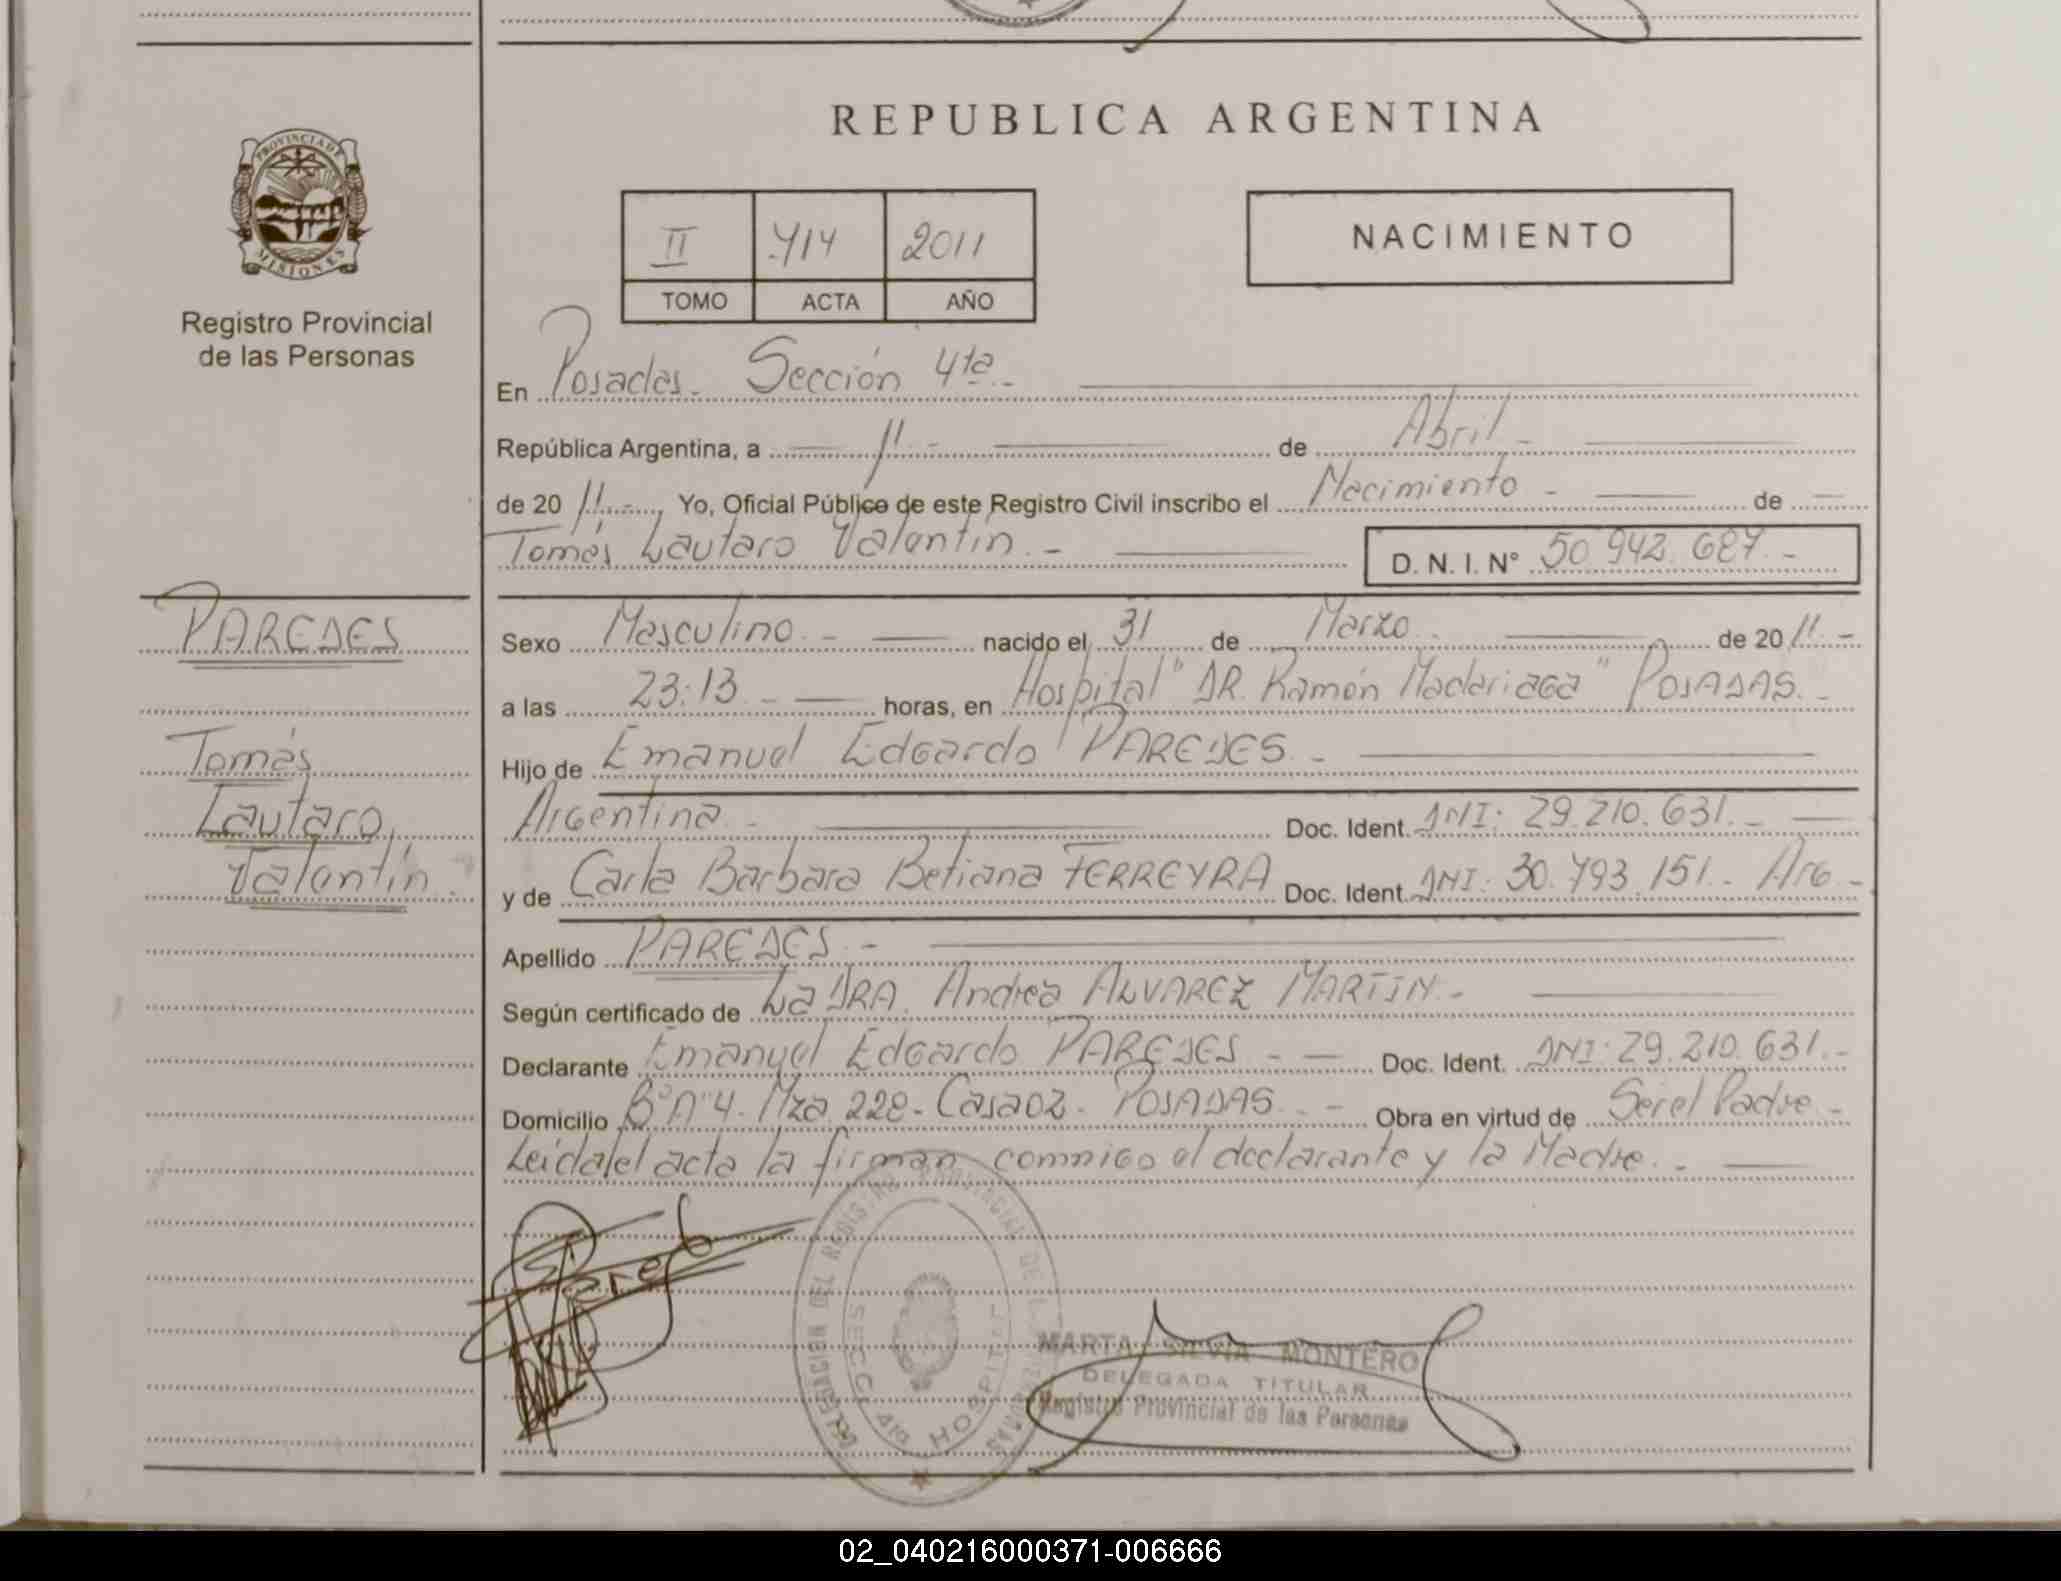 REPUBLICA ARGENTINA
PROVINCIA DE
MISIONES
Registro Provincial
de las Personas
II 714 2011
TOMO ACTA AÑO
NACIMIENTO
En Posadas. Sección 4ta.-
República Argentina, a 11.- de Abril.-
de 20 11.-, Yo, Oficial Público de este Registro Civil inscribo el Nacimiento.- de
Tomás Lautaro Valentín.-
D. N. I. N° 50.942.687.-
PAREDES
Tomás
Lautaro
Valentín.-
Sexo Masculino.- nacido el 31 de Marzo.- de 20 11.-
a las 23:13.- horas, en Hospital "DR. Ramón Madariaga" POSADAS.-
Hijo de Emanuel Edgardo PAREDES.-
Argentina.- Doc. Ident. DNI: 29.210.631.-
y de Carla Barbara Betiana FERREYRA Doc. Ident. DNI: 30.793.151.- Arg.-
Apellido PAREDES.-
Según certificado de La DRA. Andrea ALVAREZ MARTIN.-
Declarante Emanuel Edgardo PAREDES.- Doc. Ident. DNI: 29.210.631.-
Domicilio B° A 4. Mza 228- Casa 02- POSADAS.- Obra en virtud de Ser el Padre.-
Leída el acta la firman conmigo el declarante y la Madre.-
DELEGACION DEL REGISTRO PROVINCIAL DE LAS PERSONAS
SECC. 4ta HOSPITAL
MARTA SILVIA MONTERO
DELEGADA TITULAR
Registro Provincial de las Personas
02_040216000371-006666